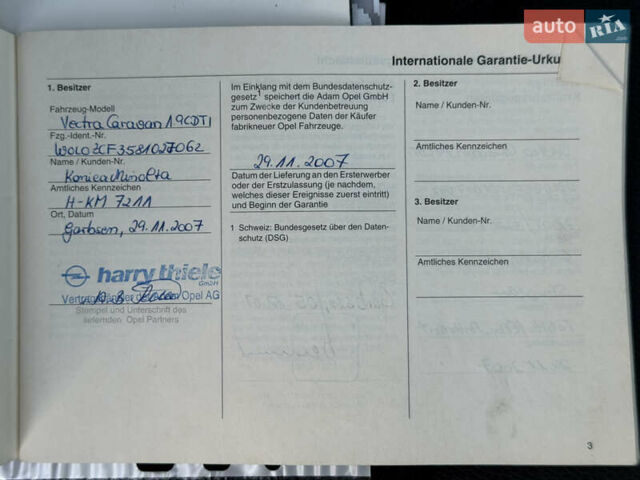 auto RIA.com
Internationale Garantie-Urku
1. Besitzer
Fahrzeug-Modell
Vectra Caravan 1.9 CDTI
Fzg.-Ident.-Nr.
W0L0ZCF3581027062
Name / Kunden-Nr.
Konica Minolta
Amtliches Kennzeichen
H-KM 7211
Ort, Datum
Garbsen, 29.11.2007
harry thiele
GmbH
Opel AG
Stempel und Unterschrift des
liefernden Opel Partners
Im Einklang mit dem Bundesdatenschutz-
gesetz1 speichert die Adam Opel GmbH
zum Zwecke der Kundenbetreuung
personenbezogene Daten der Käufer
fabrikneuer Opel Fahrzeuge.
29.11.2007
Datum der Lieferung an den Ersterwerber
oder der Erstzulassung (je nachdem,
welches dieser Ereignisse zuerst eintritt)
und Beginn der Garantie
1 Schweiz: Bundesgesetz über den Daten-
schutz (DSG)
2. Besitzer
Name / Kunden-Nr.
Amtliches Kennzeichen
3. Besitzer
Name / Kunden-Nr.
Amtliches Kennzeichen
3